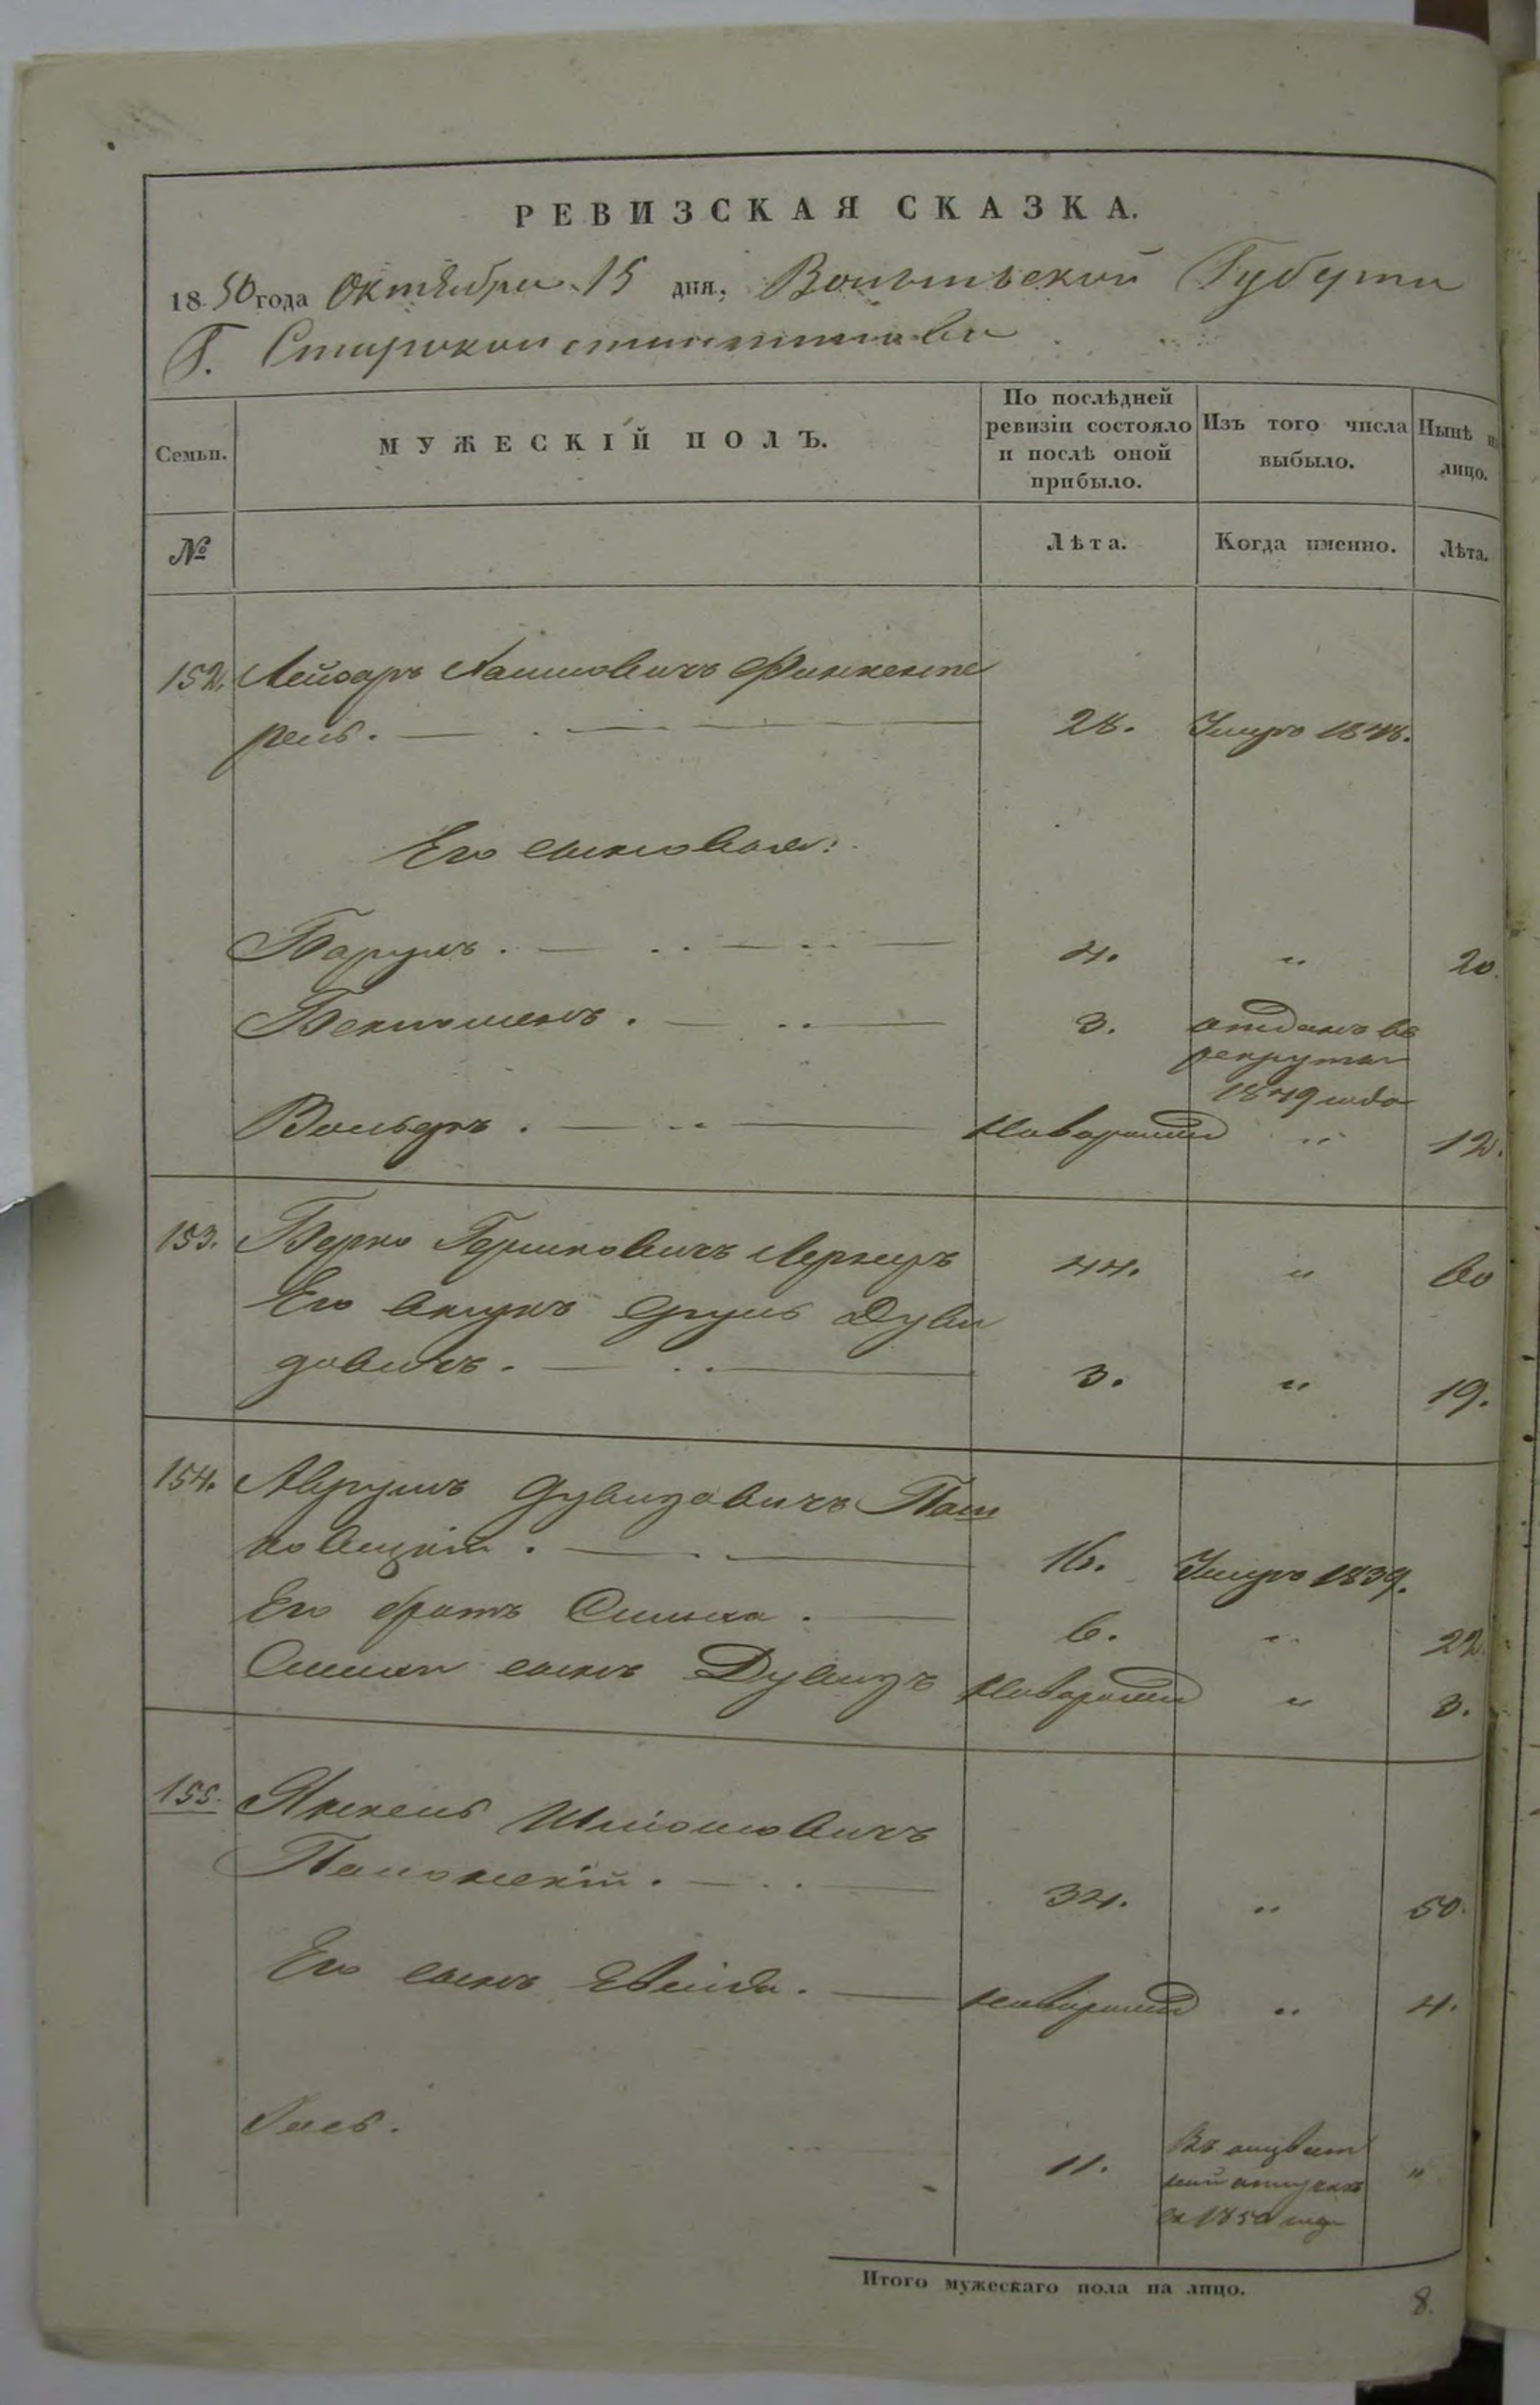 РЕВИЗСКАЯ СКАЗКА.
1850 года Октября 15 дня, Волынской Губерни
Г. Староконстантинова
Семьи.
МУЖЕСКІЙ ПОЛЪ.
По послѣдней
ревизіи состояло
и послѣ оной
прибыло.
Изъ того числа
выбыло.
Нынѣ на
лицо.
№
Лѣта.
Когда именно.
Лѣта.
152. Лейзаръ Хаимовичъ Финкенте
рель. 28. Умеръ 1848.
Его сыновья:
Барухъ. 4. " 20.
Бенюменъ. 3. отданъ въ
рекруты
1849 года
Вольфъ. новорожд " 12.
153. Берко Гершковичъ Лернеръ 44. " 60
Его внукъ Сруль Дуви
довичъ. 3. " 19.
154. Аврумъ Дувидовичъ Паш
ковецкій. 16. Умеръ 1839.
Его братъ Симха. 6. " 22.
Симхи сынъ Дувидъ новорожд " 3.
155. Янкель Шліомовичъ
Полонскій. 34. " 50.
Его сынъ новорожд " 4.
11. Въ
1850 "
Итого мужескаго пола на лицо.
8.